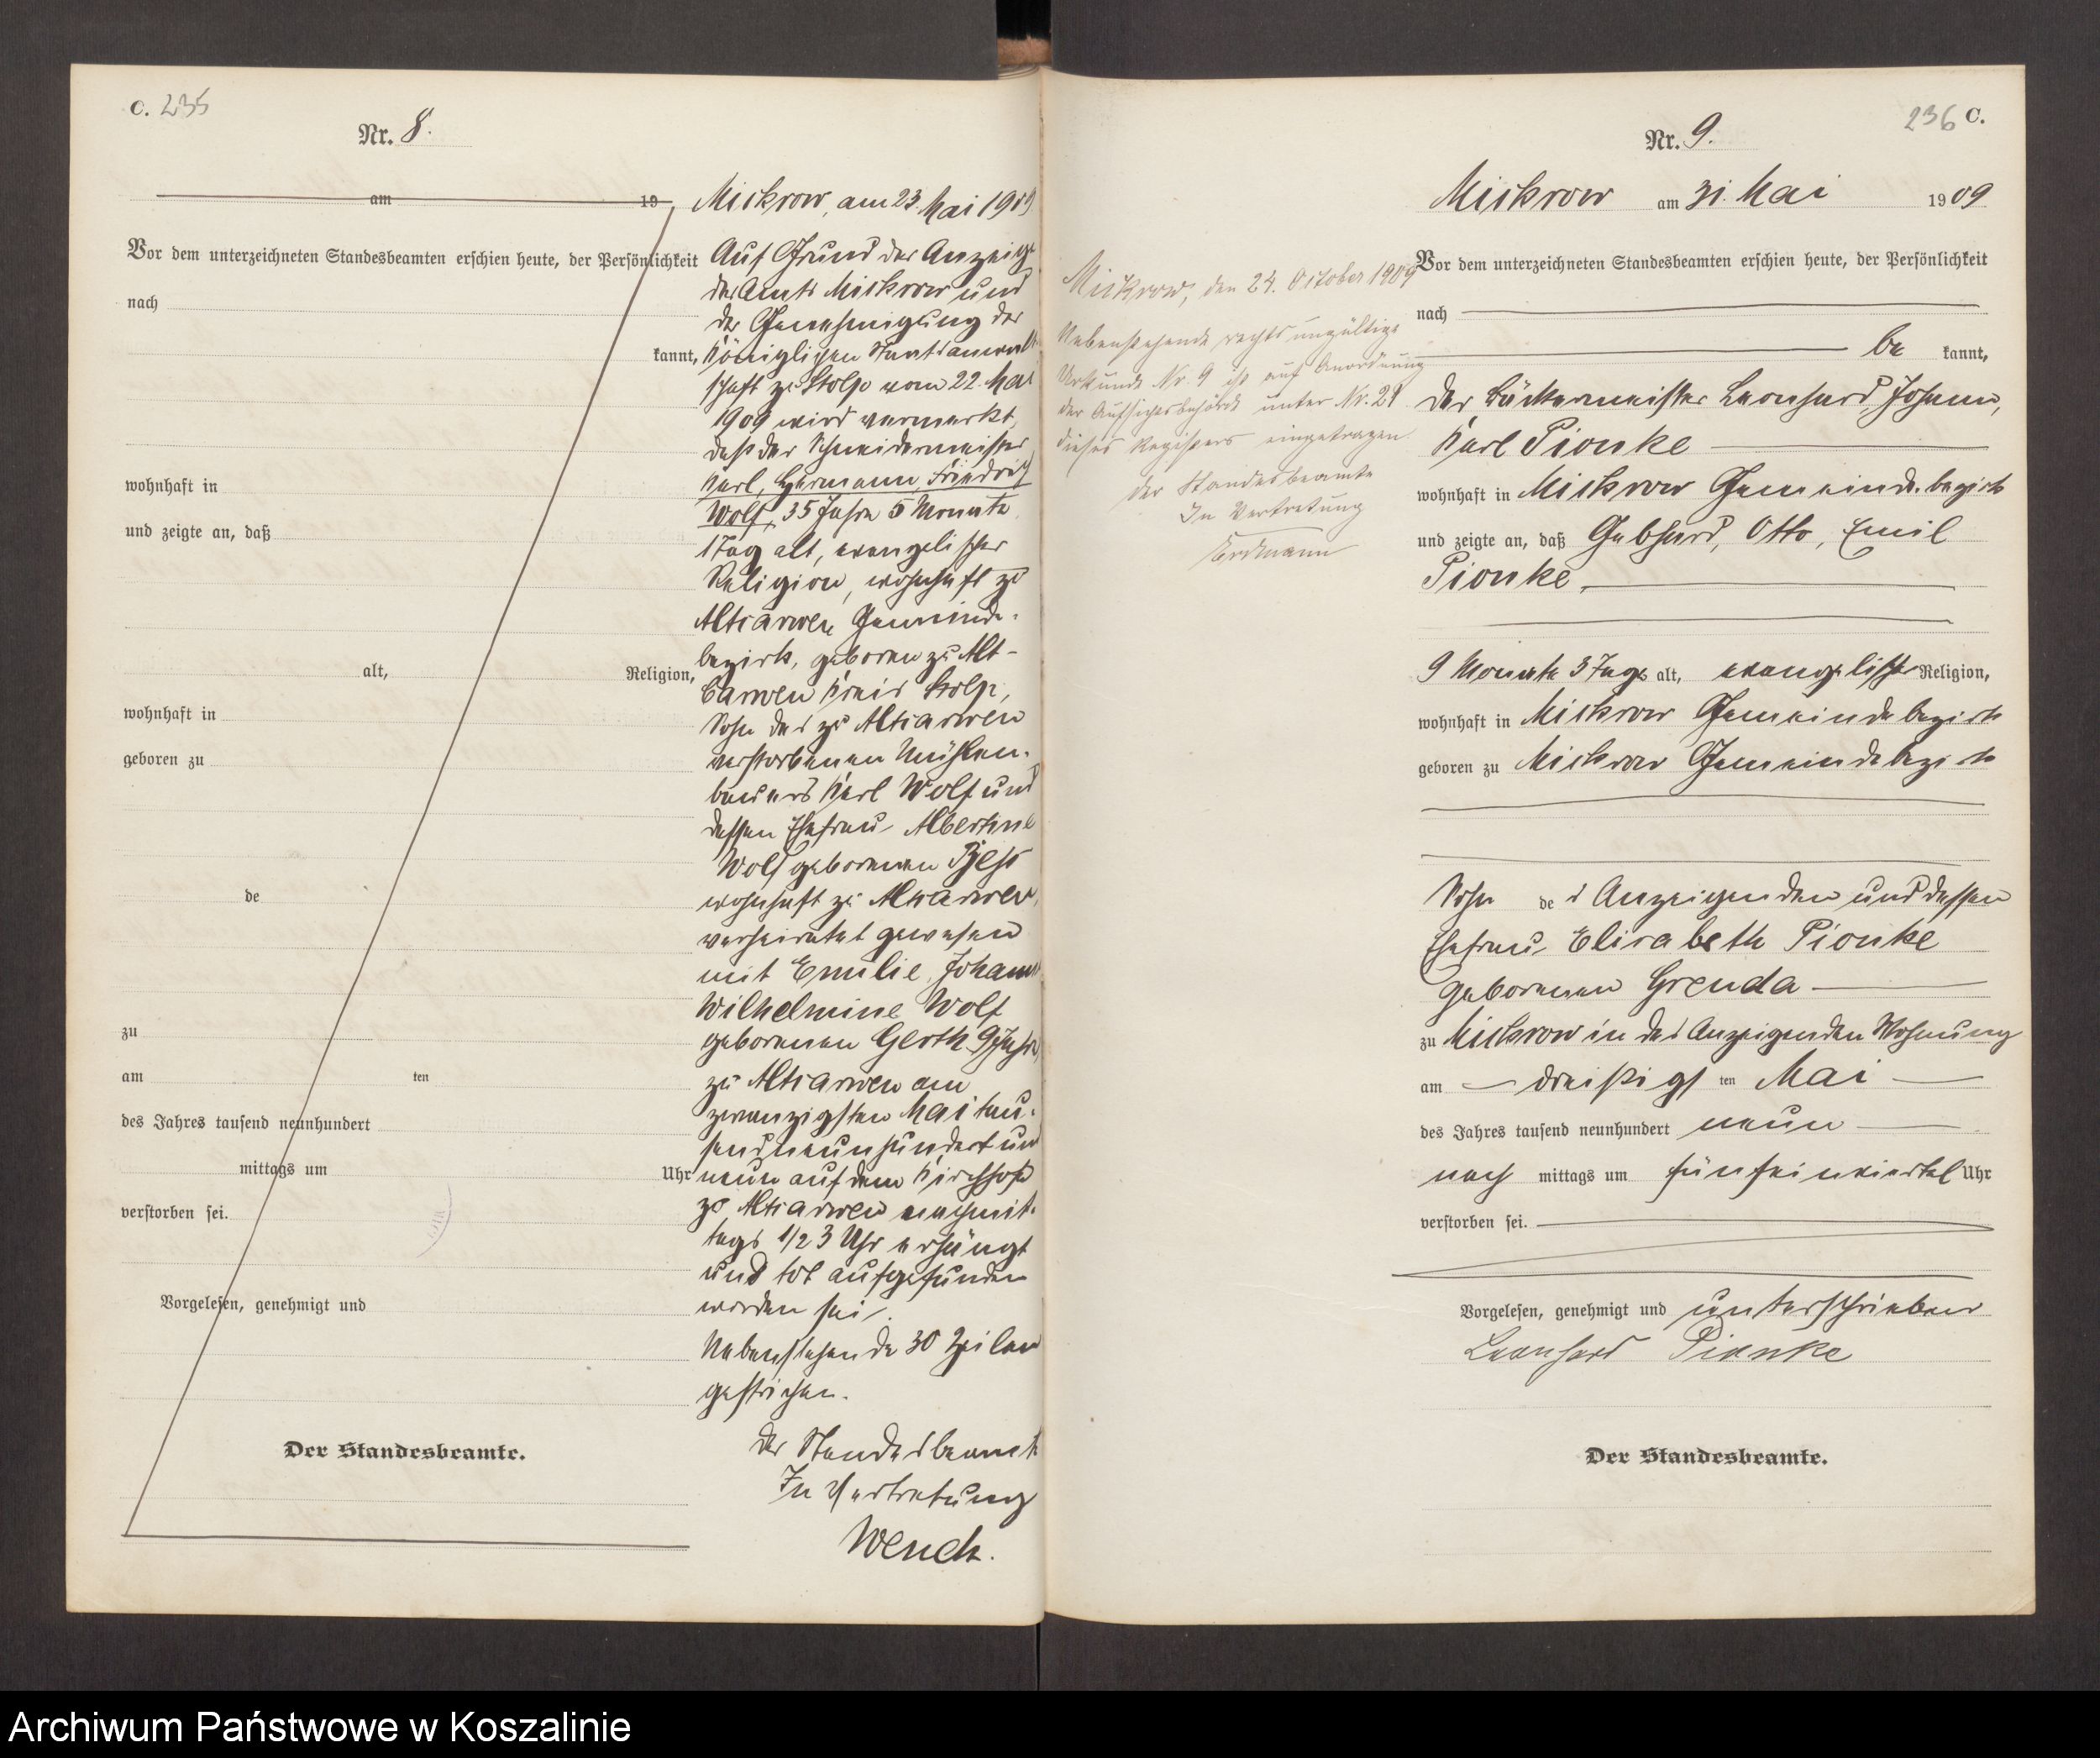 C. 235
Nr. 8.
am 19
Mickrow, am 23. Mai 1909
Vor dem unterzeichneten Standesbeamten erschien heute, der Persönlichkeit
nach
kannt,
wohnhaft in
und zeigte an, daß
alt, Religion,
wohnhaft in
geboren zu
de
zu
am ten
des Jahres tausend neunhundert
mittags um Uhr
verstorben sei.
Vorgelesen, genehmigt und
Der Standesbeamte.
Auf Grund der Anzeige
des Amts Mickrow und
der Genehmigung der
Königlichen Staatsanwalt
schaft zu Stolp vom 22. Mai
1909 wird vermerkt,
daß der Schneidermeister
Karl, Hermann, Friedrich
Wolf, 35 Jahre 5 Monate
1 Tag alt, evangelischer
Religion, wohnhaft zu
Altjarwen Gemeinde-
bezirk, geboren zu Alt-
Carwen Kreis Stolp,
Sohn des zu
verstorbenen Mühlen-
bauers Karl Wolf und
dessen Ehefrau Albertine
Wolf geborenen
wohnhaft zu
verheiratet gewesen
mit Emilie, Johanne
Wilhelmine Wolf
geborenen Gerth
zu am
zwanzigsten Mai tau-
send neunhundert und
neun auf dem Kirchhofe
zu nachmit-
tags 1/2 3 Uhr erhängt
und tot aufgefunden
worden sei.
Nebenstehende 30 Zeilen
gestrichen.
Der Standesbeamte
In Vertretung
Wench.
236 C.
Nr. 9.
Mickrow am 31. Mai 1909
Mickrow, den 24. October 1909
Nebenstehende rechtsungültige
Urkunde Nr. 9 ist auf Anordnung
der Aufsichtsbehörde unter Nr. 21
dieses Registers eingetragen.
Der Standesbeamte
In Vertretung
Vor dem unterzeichneten Standesbeamten erschien heute, der Persönlichkeit
nach
be kannt,
der Bäckermeister Leonhard, Johann,
Karl Pionke
wohnhaft in Mickrow Gemeindebezirk
und zeigte an, daß Gebhard, Otto, Emil
Pionke,
9 Monate 3 Tage alt, evangelischer Religion,
wohnhaft in Mickrow Gemeindebezirk
geboren zu Mickrow Gemeindebezirk
Sohn des Anzeigenden und dessen
Ehefrau Elisabeth Pionke
geborenen Grenda
zu Mickrow in des Anzeigenden Wohnung
am dreißigst ten Mai
des Jahres tausend neunhundert neun
nach mittags um fünfeinviertel Uhr
verstorben sei.
Vorgelesen, genehmigt und unterschrieben
Leonhard Pionke
Der Standesbeamte.
Archiwum Państwowe w Koszalinie